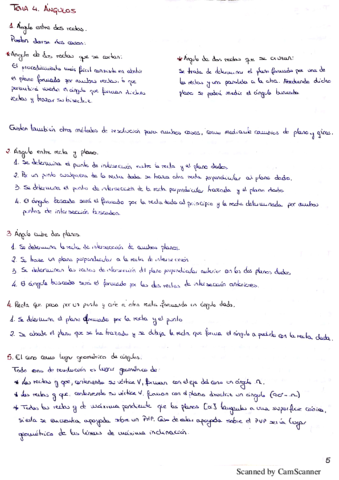 TEMA 4. ÁNGULOS
1. Ángulo entre dos rectas.
Pueden darse dos casos:
* Ángulo de dos rectas que se cortan:
El procedimiento más fácil consiste en abatir
el plano formado por ambas rectas, lo que
permitirá medir el ángulo que forman dichas
rectas y trazar su bisectriz.
* Ángulo de dos rectas que se cruzan:
Se trata de determinar el plano formado por una de
las rectas y una paralela a la otra. Abatiendo dicho
plano se podrá medir el ángulo buscado
Existen también otros métodos de resolución para muchos casos, como mediante cambios de plano y giros.
2. Ángulo entre recta y plano.
1. Se determina el punto de intersección entre la recta y el plano dados.
2. Por un punto cualquiera de la recta dada se traza otra recta perpendicular al plano dado.
3. Se determina el punto de intersección de la recta perpendicular trazada y el plano dado
4. El ángulo buscado será el formado por la recta dada al principio y la recta determinada por ambos
puntos de intersección buscados.
3. Ángulo entre dos planos.
1. Se determina la recta de intersección de ambos planos.
2. Se traza un plano perpendicular a la recta de intersección
3. Se determinan las rectas de intersección del plano perpendicular anterior con los dos planos dados.
4. El ángulo buscado será el formado por las dos rectas de intersección anteriores.
4. Recta que pasa por un punto y corta a otra recta formando un ángulo dado.
1. Se determina el plano formado por la recta y el punto
2. Se abate el plano que se ha trazado y se dibuja la recta que forma el ángulo pedido con la recta dada.
5. El cono como lugar geométrico de ángulos.
Todo cono de revolución es lugar geométrico de
* Las rectas g que, conteniendo su vértice V, forman con el eje del cono un ángulo
* Las rectas g que, conteniendo su vértice V, forman con el plano directriz un ángulo
* Todas las rectas g de máxima pendiente que los planos tangentes a una superficie cónica,
si esta se encuentra apoyada sobre un PHP. Caso de estar apoyada sobre el PVP sería lugar
geométrico de las líneas de máxima inclinación
5
Scanned by CamScanner